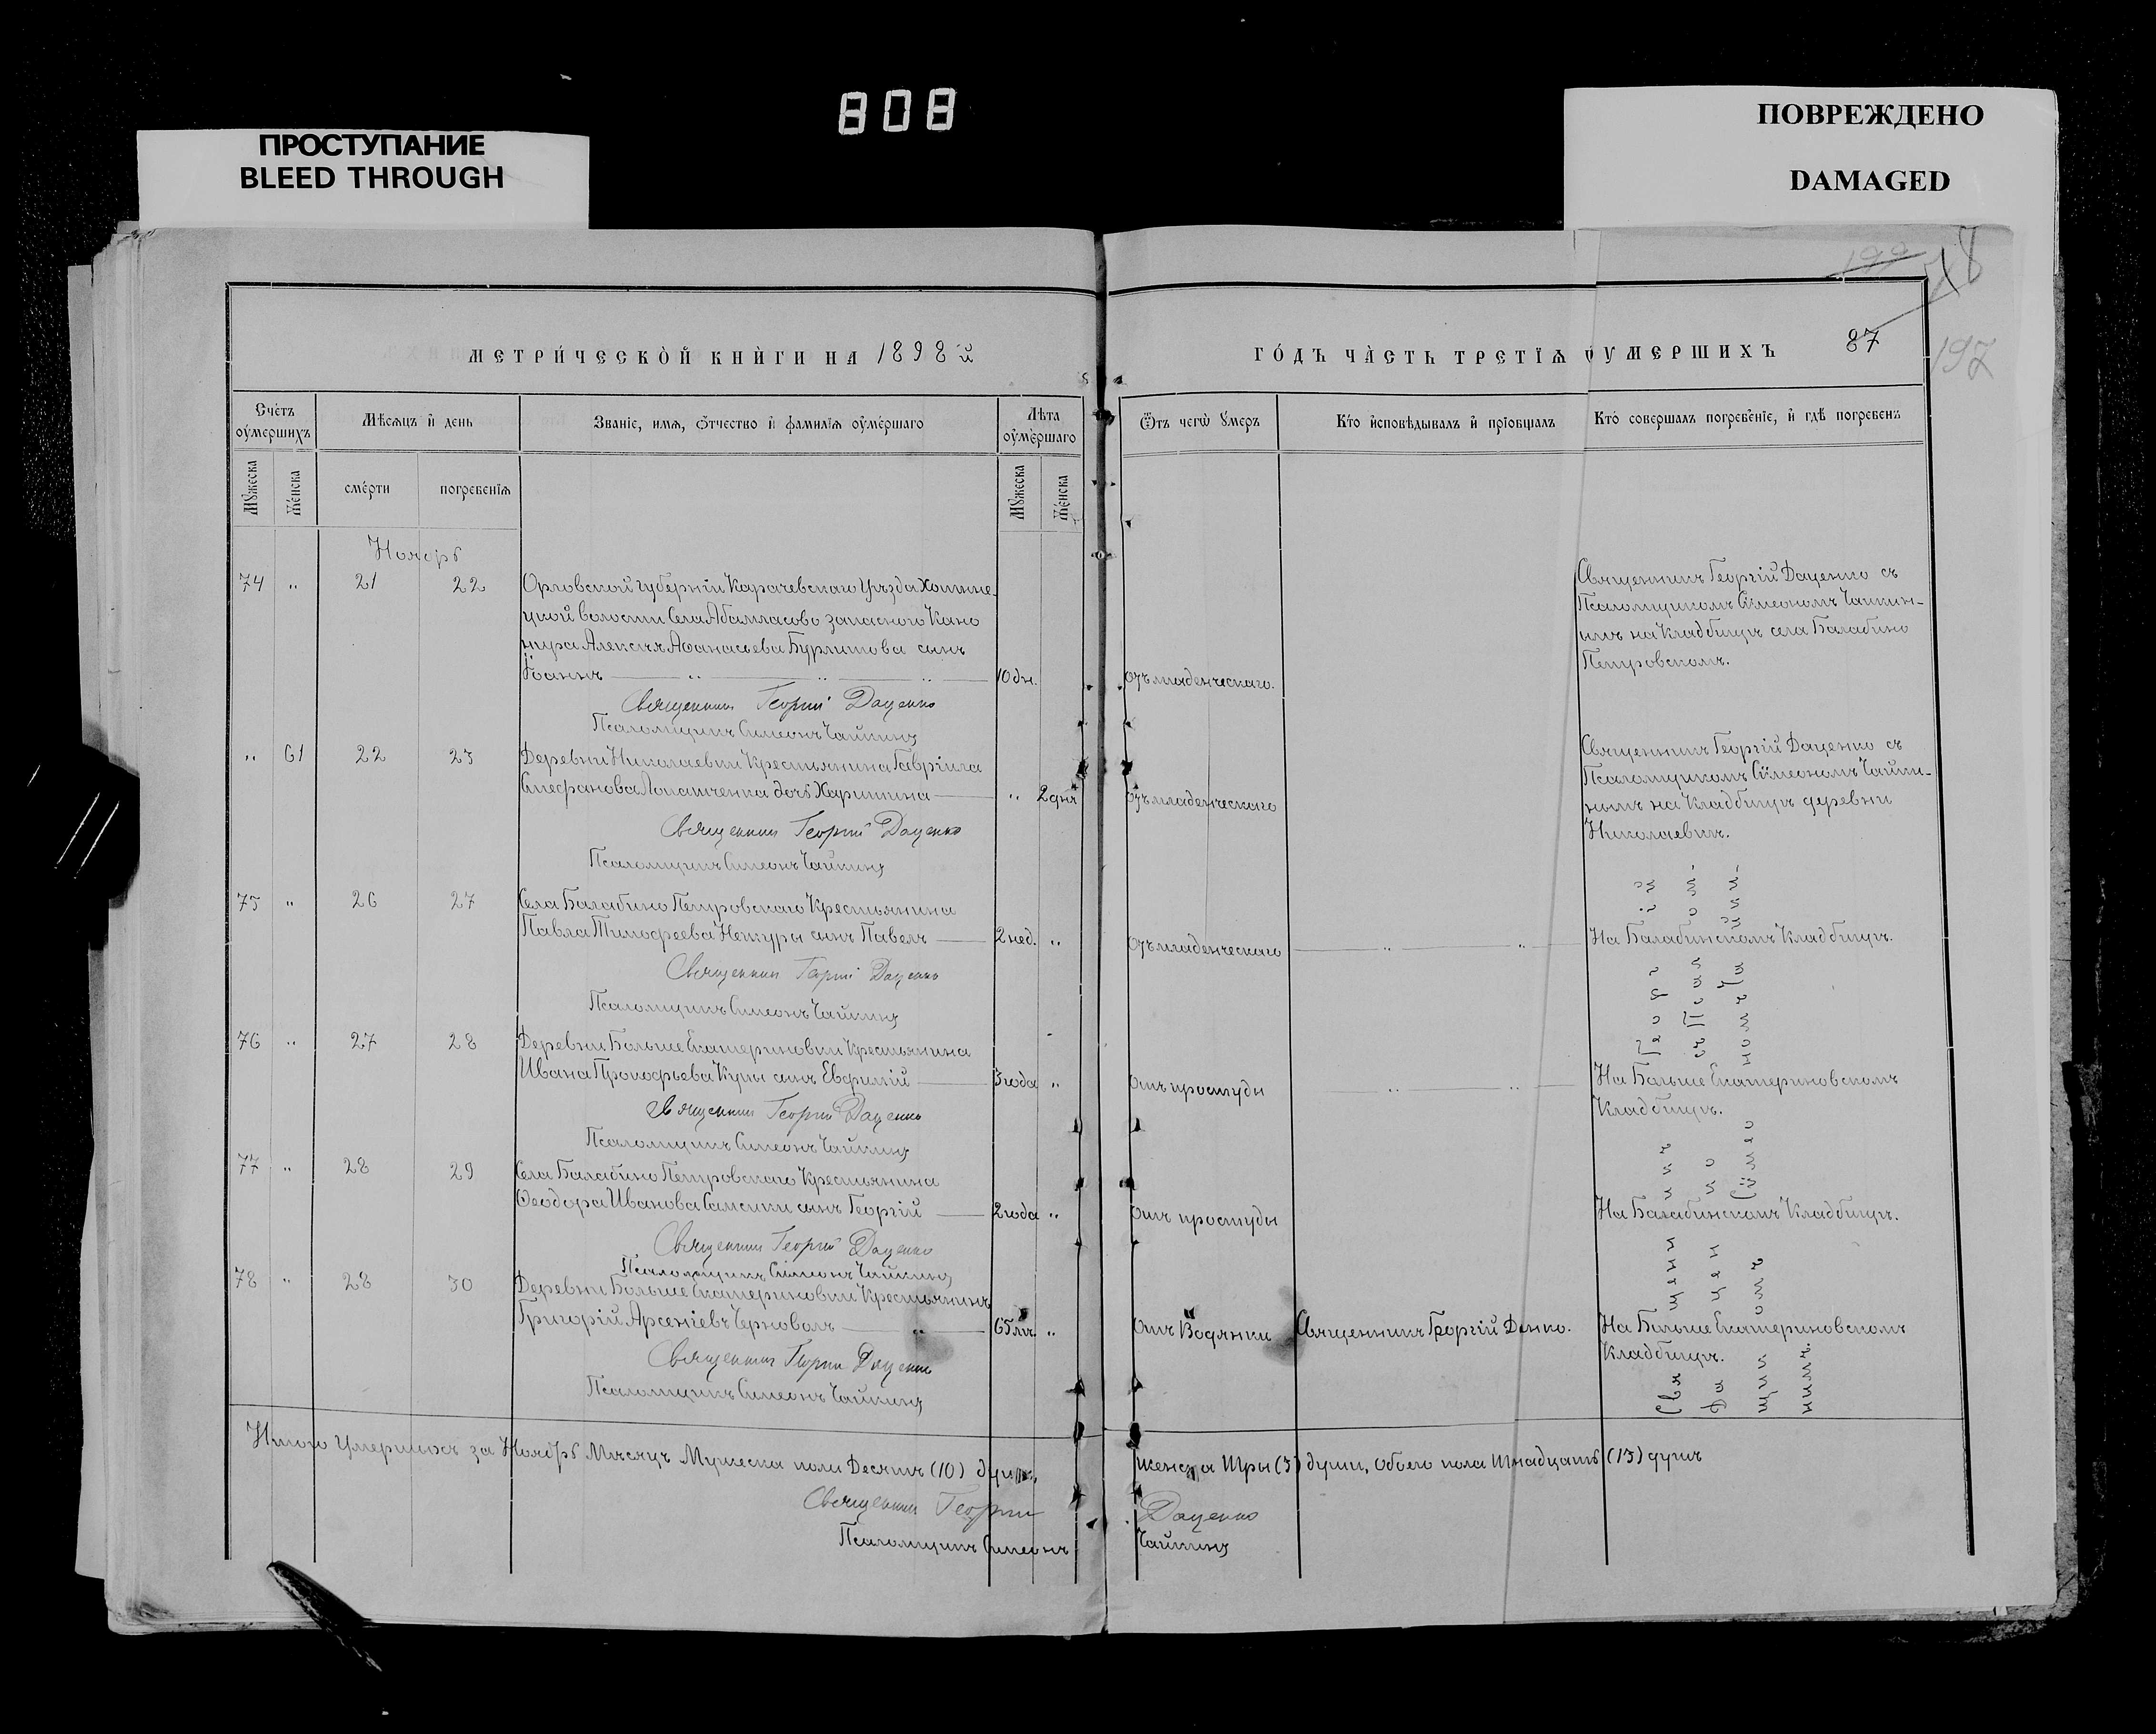 808
ПРОСТУПАНИЕ
BLEED THROUGH
ПОВРЕЖДЕНО
DAMAGED
МЕТРИ́ЧЕСКОЙ КНИ́ГИ НА 1898 й
ГО́ДЪ ЧА́СТЬ ТРЕТІѦ ОУМЕРШИХЪ
87
197
Счетъ оумершихъ
Мѣсяцъ и день
Званіе, имя, отчество и фамилія оумершаго
Лѣта оумершаго
Отъ чегѡ умеръ
Кто исповѣдывалъ и пріобщалъ
Кто совершалъ погребеніе, и гдѣ погребенъ
Мужеска
Женска
смерти
погребенія
Мужеска
Женска
Ноябрь
74 " 21 22 Орловской губерніи Карачевскаго Уѣзда
цкой волости Села запаснаго Кано
нира Алексѣя Аѳанасьева Бурлитова сынъ
Іоаннъ — " — " — " — 10 дн. Отъ младенческаго.
Священникъ Георгій Даценко съ
Псаломщикомъ Сѵмеономъ Чайкин-
ымъ на Кладбищѣ села Балабино
Петровскомъ.
Священникъ Георгій Даценко
Псаломщикъ Симеонъ Чайкинъ
" 61 22 23 Деревни Николаевки Крестьянина Георгія
Стефанова Лопатченка дочь Харитина — " 2 дня Отъ младенческаго
Священникъ Георгій Даценко съ
Псаломщикомъ Сѵмеономъ Чайки-
нымъ на Кладбищѣ деревни
Николаевки.
Священникъ Георгій Даценко
Псаломщикъ Симеонъ Чайкинъ
75 " 26 27 Села Балабино Петровскаго Крестьянина
Павла Тимофеева Нежуры сынъ Павелъ — 2 нед. " Отъ младенческаго — " — " — На Балабинскомъ Кладбищѣ.
Священникъ Георгій Даценко
Псаломщикъ Симеонъ Чайкинъ
76 " 27 28 Деревни Больше Екатериновки Крестьянина
Ивана Прокофьева Купы сынъ Евфимій — 3 года " Отъ простуды — " — " — На Больше Екатериновскомъ
Кладбищѣ.
Священникъ Георгій Даценко
Псаломщикъ Симеонъ Чайкинъ
77 " 28 29 Села Балабино Петровскаго Крестьянина
Ѳеодора Иванова сынъ Георгій — 2 года " Отъ простуды На Балабинскомъ Кладбищѣ.
Священникъ Георгій Даценко
Псаломщикъ Симеонъ Чайкинъ
78 " 28 30 Деревни Больше Екатериновки Крестьянинъ
Григорій Арсеніевъ Черноволъ — " — 65 лѣт. " Отъ Водянки Священникъ Георгій Д
На Больше Екатериновскомъ
Кладбищѣ.
Священникъ Георгій Даценко
Псаломщикъ Симеонъ Чайкинъ
Священникъ Георгій
Даценко съ Псаломъ-
щикомъ Сѵмеономъ Чайки-
нымъ.
Итого Умершихъ за Ноябрь Мѣсяцъ Мужеска пола Десять (10) душъ, женска три (3) души, обоего пола тринадцать (13) душъ
Священникъ Георгій Даценко
Псаломщикъ Симеонъ Чайкинъ